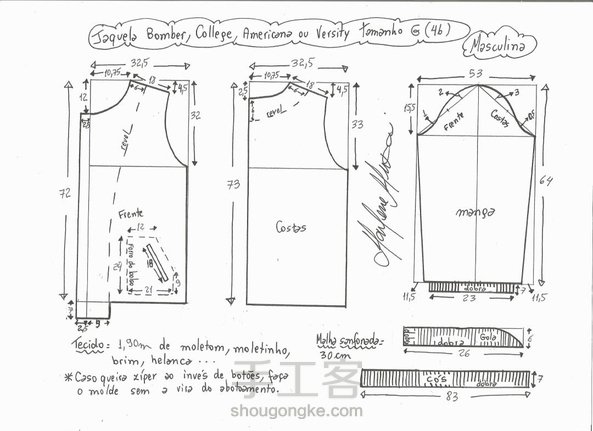 Jaqueta Bomber, College, Americana ou Versity Tamanho G (46)
Masculina
32,5
10,75
18
4,5
12
2,5
revel
32
72
Frente
12
forro do bolso
24
18
9
21
2,5
9
32,5
10,75
18
2,5
4,5
revel
33
73
Costas
53
2
3
15,5
Frente
Costas
64
manga
11,5
dobra
7
11,5
23
Marlene Mukai
Tecido: 1,30m de moletom, moletinho,
brim, helanca ...
* Caso queira zíper ao invés de botões, faça
o molde sem a vira do abotoamento.
Malha sanfonada:
30cm
dobra
Gola
26
cós
dobra
7
83
手工客
shougongke.com